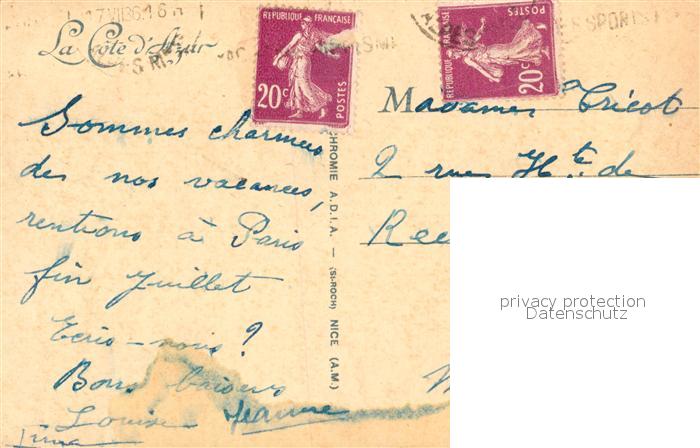 17 VII 36 16 H
La Côte d'Azur
REPUBLIQUE FRANÇAISE
20c
POSTES
REPUBLIQUE FRANÇAISE
20c
POSTES
SPORTS
Sommes charmées
des nos vacances,
rentrons à Paris
fin Juillet
Ecris-nous?
Bons baisers
Louise Jeanne
CHROMIE A.D.I.A. — (ST-ROCH) NICE (A.M.)
Madame Tricot
2 rue Hte de
privacy protection
Datenschutz